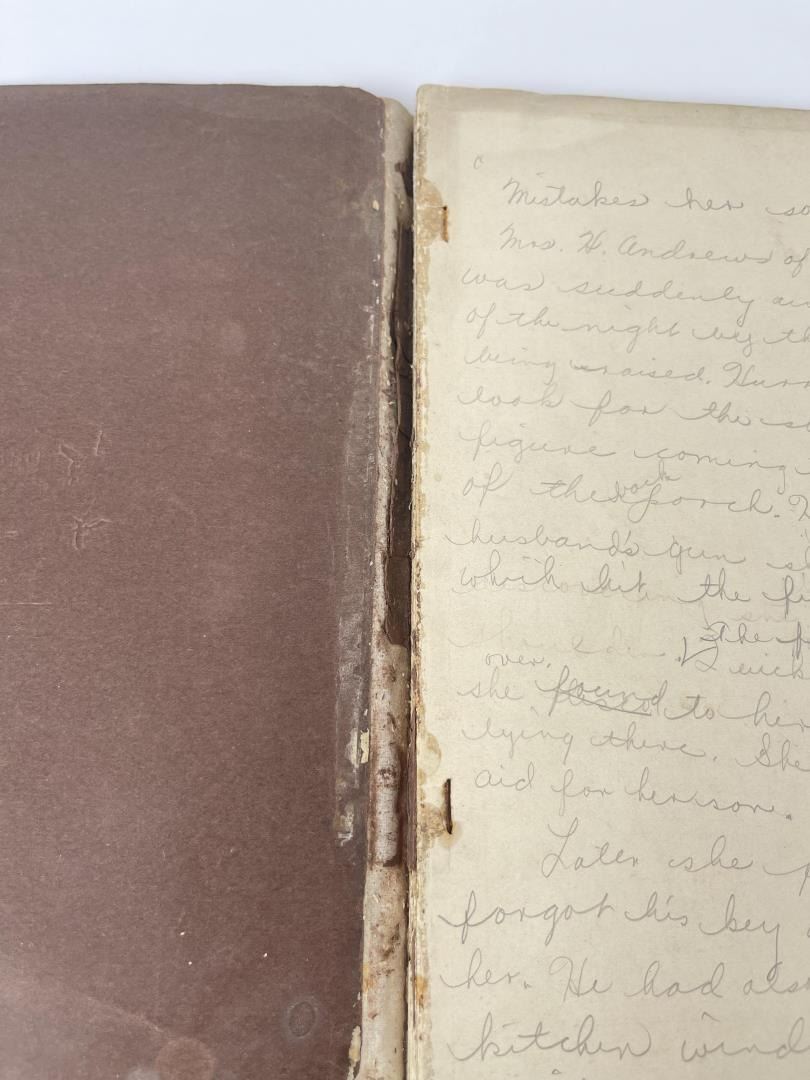 Mistakes her so
Mrs. H. Andrews of
was suddenly aw
of the night by th
being raised. Hurr
look for the so
figure coming
of the back porch.
husband's gun
which hit the fi
The f
over. Quick
she found to her
lying there. She
aid for her son.
Later she f
forgot his key
her. He had also
kitchen wind